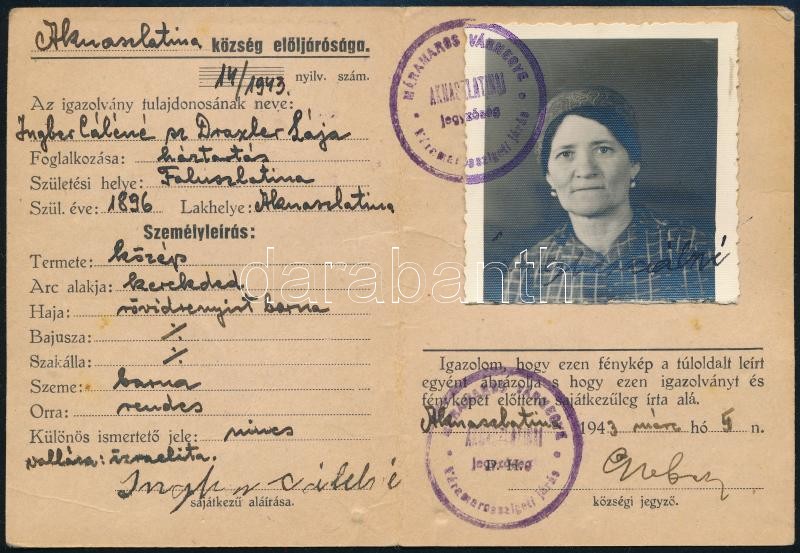 Aknaszlatina község előljárósága.
14/1943. nyilv. szám.
Az igazolvány tulajdonosának neve:
Ingber Cáléné sz Draxler Lája
Foglalkozása: háztartás
Születési helye: Faluszlatina
Szül. éve: 1896 Lakhelye: Aknaszlatina
Személyleírás:
Termete: közép
Arc alakja: kerekded
Haja: rövidrenyirt barna
Bajusza: ./.
Szakálla: ./.
Szeme: barna
Orra: rendes
Különös ismertető jele: nincs
vallása: izraelita.
sajátkezű aláírása.
MÁRAMAROS VÁRMEGYE
AKNASZLATINAI
jegyzőség
Máramarosszigeti járás
Igazolom, hogy ezen fénykép a túloldalt leírt
egyént ábrázolja s hogy ezen igazolványt és
fényképet előttem sajátkezűleg írta alá.
Aknaszlatina 1943 márc hó 5 n.
MÁRAMAROS VÁRMEGYE
AKNASZLATINAI
jegyzőség
P. H.
Máramarosszigeti járás
községi jegyző.
darabanth